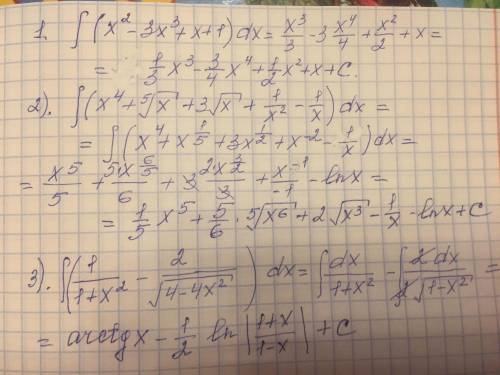 1. ∫(x² - 3x³ + x + 1) dx = x³/3 - 3 x⁴/4 + x²/2 + x =
= 1/3 x³ - 3/4 x⁴ + 1/2 x² + x + C.
2). ∫(x⁴ + ⁵√x + 3√x + 1/x² - 1/x) dx =
= ∫(x⁴ + x^(1/5) + 3x^(1/2) + x^(-2) - 1/x) dx =
= x⁵/5 + 5·x^(6/5)/6 + 3 2x^(3/2)/3 + x^(-1)/-1 - lnx =
= 1/5 x⁵ + 5/6 · ⁵√x⁶ + 2√x³ - 1/x - lnx + C
3). ∫(1/(1+x²) - 2/√(4-4x²)) dx = ∫dx/(1+x²) - ∫2dx/(2√(1-x²)) =
= arctgx - 1/2 ln|(1+x)/(1-x)| + C